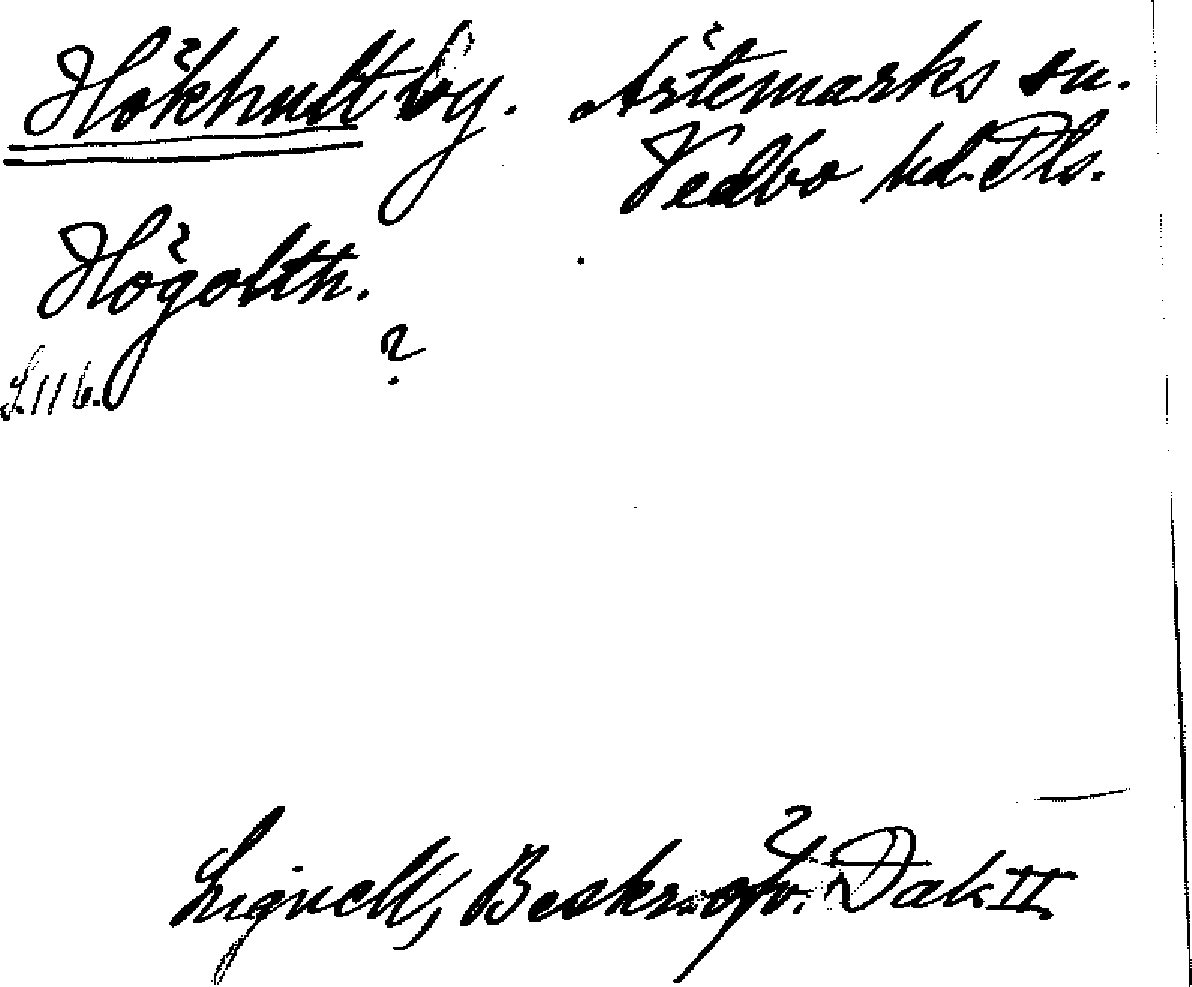 Hökhult by. Ärtemarks sn.
Vedbo hd. Dls.
Högolth.
?
S. 116.
Lignell, Beskr. öfv. Dal. II.